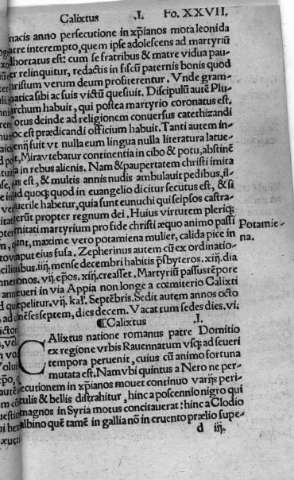 Calixtus .I. FO. XXVII.
nacis anno persecutione in xp̄ianos mota leonida
patre interempto, quem ipse adolescens ad martyriū
adhortatus est: cum se fratribus & matre vidua pau-
per relinquitur, redactis in fiscū paternis bonis quod
christum verum deum profiterentur. Vnde gram-
matica sibi ac suis victū quesiuit. Discipulū autē Plu-
archum habuit, qui postea martyrio coronatus est,
otus deinde ad religionem conuersus catechizandi
oc est prædicandi officium habuit. Tanti autem in-
enii fuit vt nulla eum lingua nulla literatura latue-
. Miraƀ tebatur continentia in cibo & potu, abstinē
tia in rebus alienis. Nam & paupertatem christi imita
est, & multis annis nudis ambulauit pedibus,
quod in euangelio dicitur secutus est, & si
uerile habetur, quia sunt eunuchi qui seipsos castra-
propter regnum dei. Huius virtutem
martyrium pro fide christi æquo animo passi
maxime vero potamiena mulier, calida pice in
eius fusa, Zepherinus autem cū ex ordinatio-
mense decembri habitis p̄sbyteros .xiij. dia
vij. ep̄os .xiij. creasset, Martyriū passus
in Via Appia non longe a cœmiterio Calixti
.vij. kaƚ. Septēbris. Sedit autem annos octo
menses septem, dies decem. Vacat tum sedes dies .vi.
Potamie-
na.
¶Calixtus .I.
CAlixtus natione romanus patre Domitio
ex regione vrbis Rauennatum vsq; ad seueri
tempora peruenit, cuius cū animo fortuna
mutata est. Nam vbi quintus a Nero ne per-
secutionem in xp̄ianos mouet continuo varijs peri-
culis & bellis distrahitur, hinc a poscennio nigro qui
magnos in Syria motus concitauerat: hinc a Clodio
albino quē tamē in gallia nō in cruento prælio supe-
d iij.